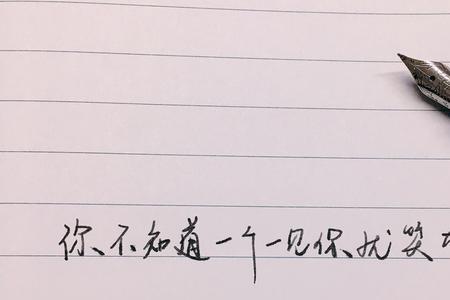 你不知道一个一见你就笑